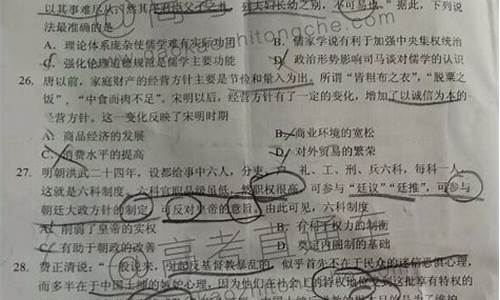 以其事难尽从
列夫妇长幼之别，不可易也。”据此，下列说
法最准确的是
A．理论体系庞杂使儒学难有实际功用
B．儒家学说有利于加强中央集权统治
C．强化伦理道德规范是儒学主要功能
D．政治形势影响司马谈对儒学的认识
26．唐以前，家庭财产的经营方针主要是节俭和量入为出。所谓“皆粗布之衣”，“脱粟之
饭”，“中食而肉不足”。宋明以后，经营方针有了一定的变化，增加了以诚信为本的
经营方针。这一变化反映了宋明时期
A．商品经济的发展
B．商业环境的宽松
C．消费水平的提高
D．对外贸易的繁荣
27．明朝洪武二十四年，设都给事中六人，分吏、户、礼、工、刑、兵六科，每科一人，
这就是六科制度。六科官职品级虽低，然职权很高，可参与“廷议”“廷推”，可参与
朝廷大政方针的制定，可反对皇帝的意旨。由此可见，六科制度
A．削弱了皇帝的实权
B．有利于权力的制衡
C．有助于朝政的改善
D．奠定内阁制的基础
28．费正清说：“一般说来，对配反基督教暴乱的，似乎首先不在于民众的迷信恐惧心理，
而多半在于中国士绅的嫉妒心理，因为他们在社会上的特权地位受到这批享有特权的
高考直通车